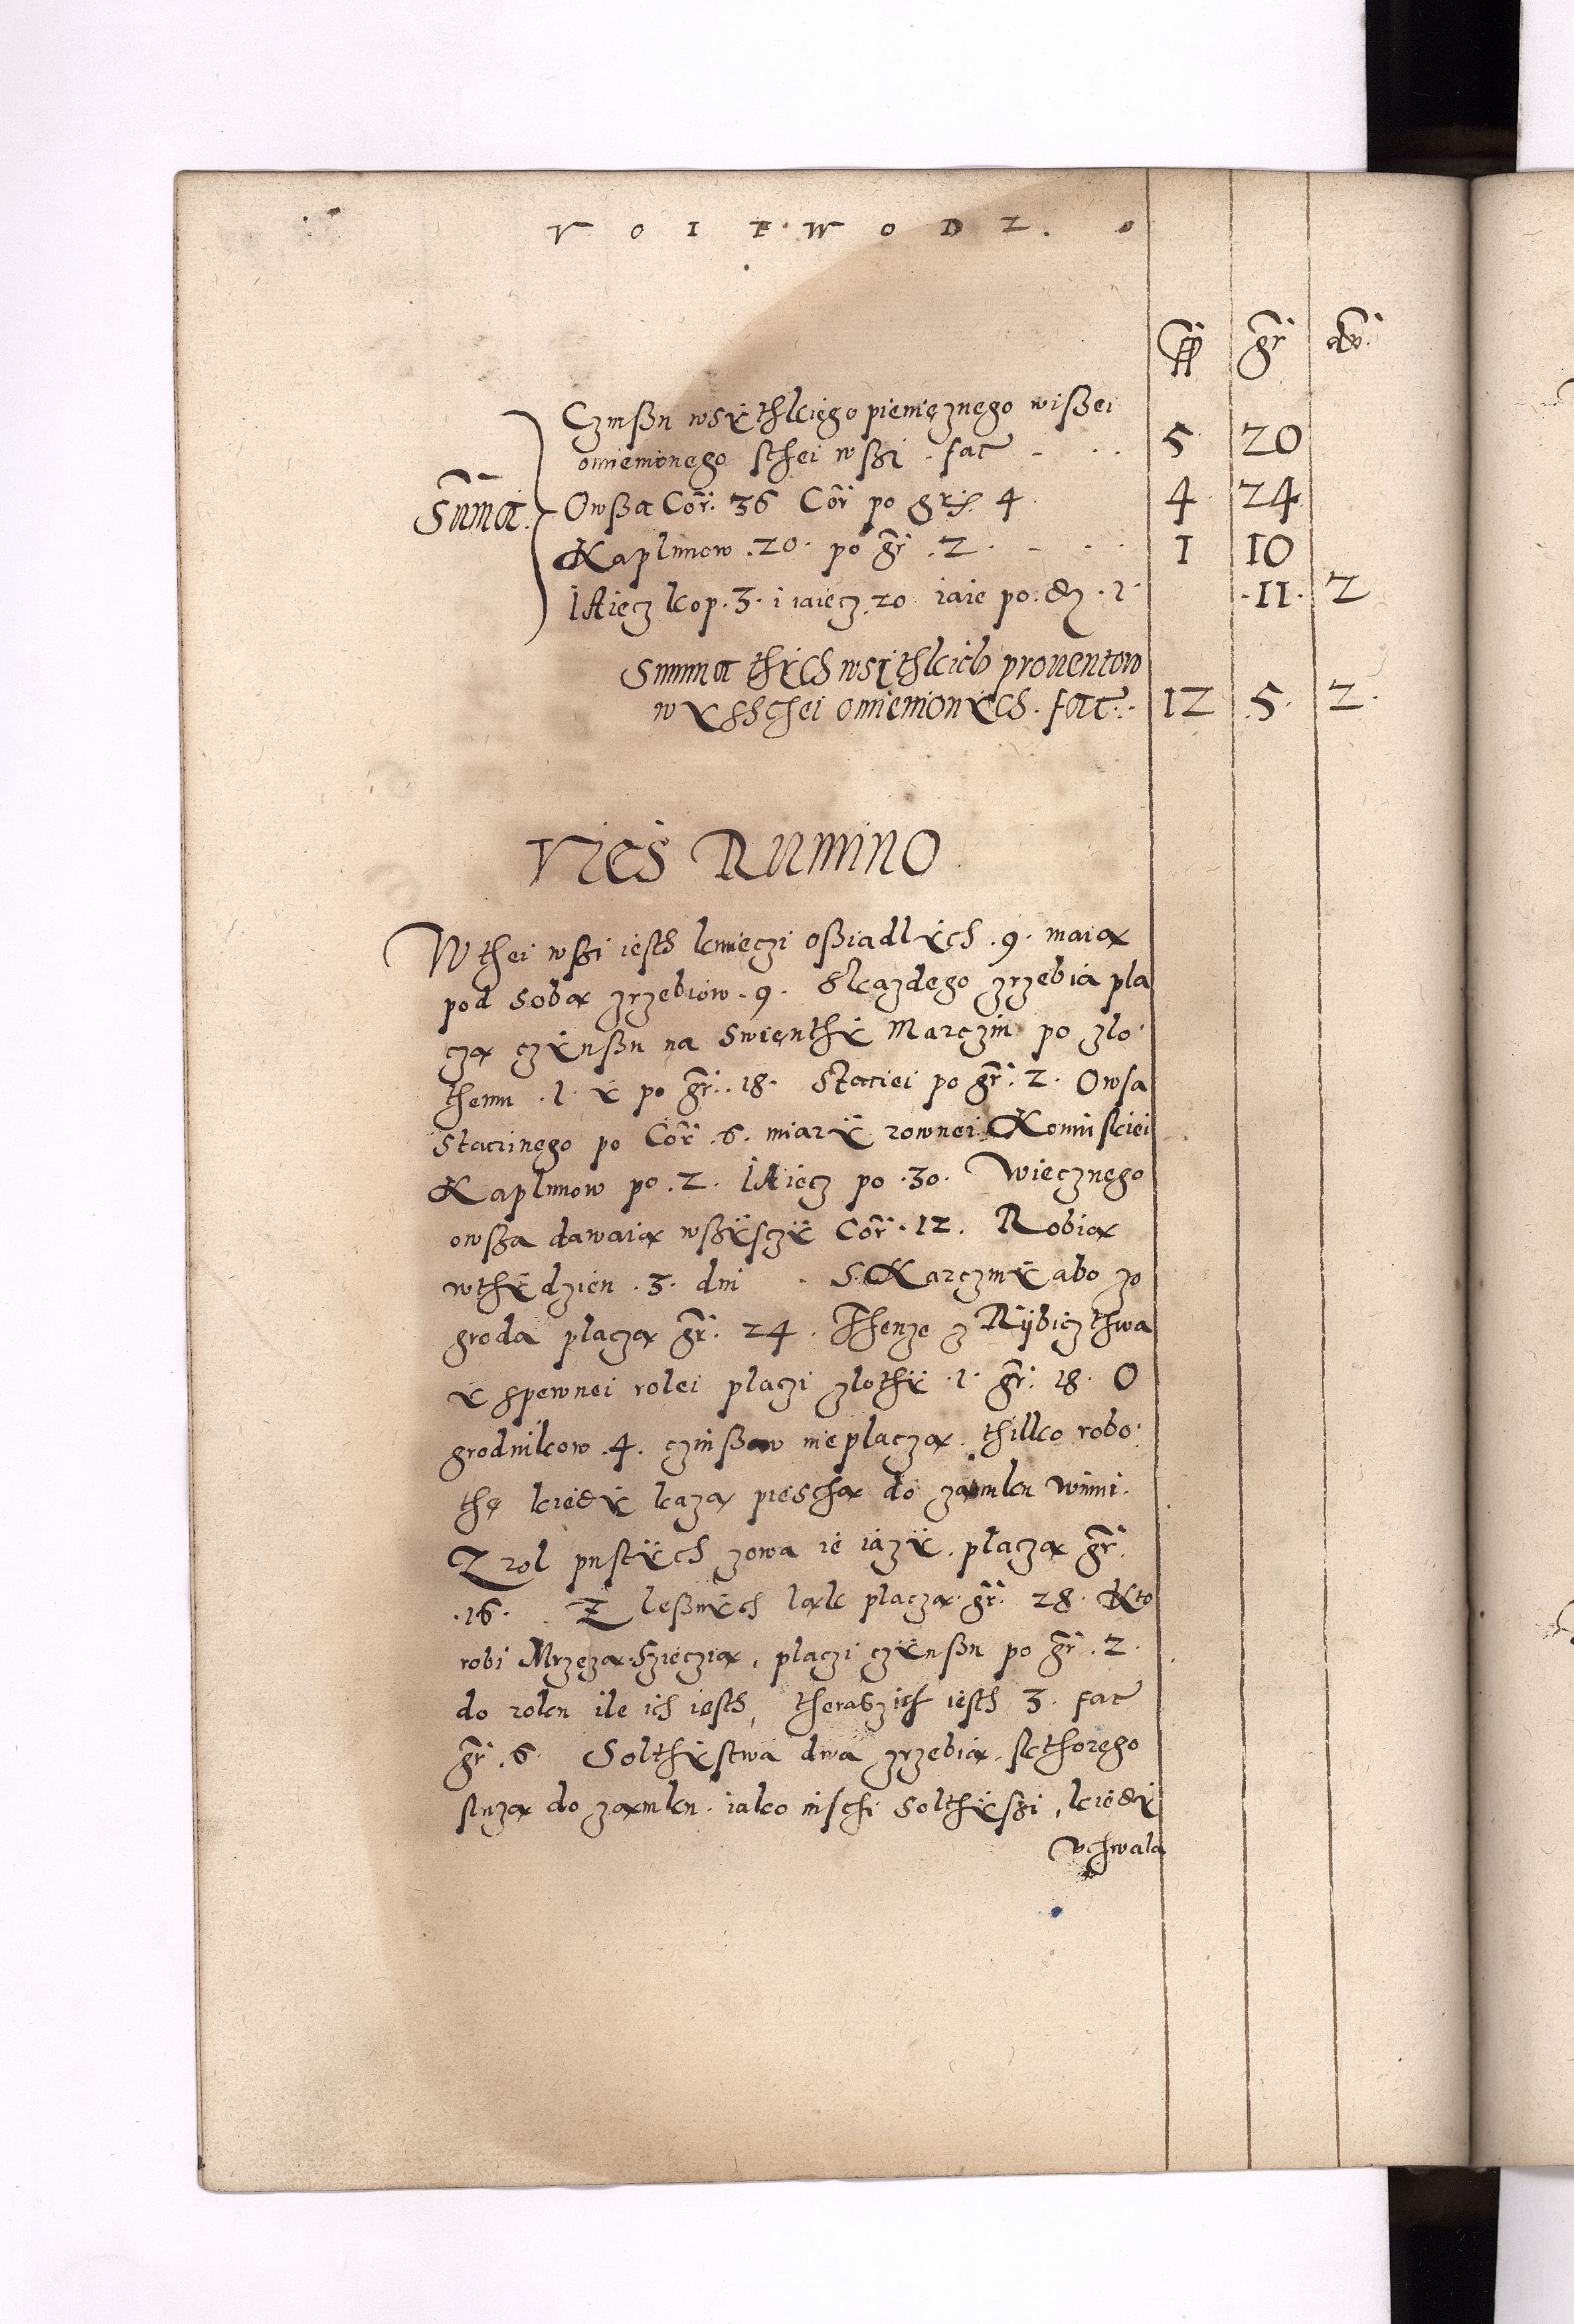 VOIEWODZ.
ff gr̃ d̃
Czinßu wsÿthkiego pieniężnego wißei
omienionego thei wßi . fac̃ 5 20
Sum̃a. Owßa Cor̃. 36 Cor̃ po gr̃. 4 4 24
Kaplunow .20. po gr̃ .2. 1 10
IAiecz kop. 3. i iaiecz 20 iaie po. .1. .11. 2
Summa thÿch wsÿthkich prouentow
wÿsschei omienionÿch. fac̃. 12 5 2.
VIES RUMINO
W thei wßi iesth kmieczi oßiadlÿch .9. maią
pod sobą zrzebiow .9. Skazdego zrzebia pla
czą czÿnßu na Swięnthÿ Marczin po zlo
themu .1. ÿ po gr̃. .18. Staciei po gr̃. 2. Owsa
Stacinego po Cor̃ .6. miarÿ rownei Koninskiei
Kaplunow po .2. IAiecz po .30. Wiecznego
owßa dawaią wßÿsczÿ Cor̃ .12. Robią
wthÿdzien .3. dni . S Karczmÿ abo zo
groda placzą gr̃. 24. Thenze z Rÿbiczthwa
ÿ spewnei rolei placzi zlothÿ .1. gr̃. 18. O
grodnikow .4. czinßow nie placzą. thilko robo
thę kiedÿ kazą pieschą do zamku winni.
Z rol pustÿch zowa ie iazÿ. placzą gr̃.
.16. Z leßnÿch ląk placzą. gr̃. 28. Kto
robi Mrzezą Szieczią, placzi czÿnßu po gr̃ .2.
do roku ile ich iesth, iesth 3. fac̃
gr̃ .6. Solthÿstwa dwa zrzebia. sktorego
sluzą do zamku. iako inschi Solthÿßi, kiedÿ
vchwala